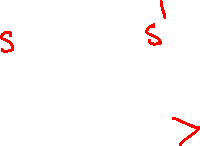 s s'
>